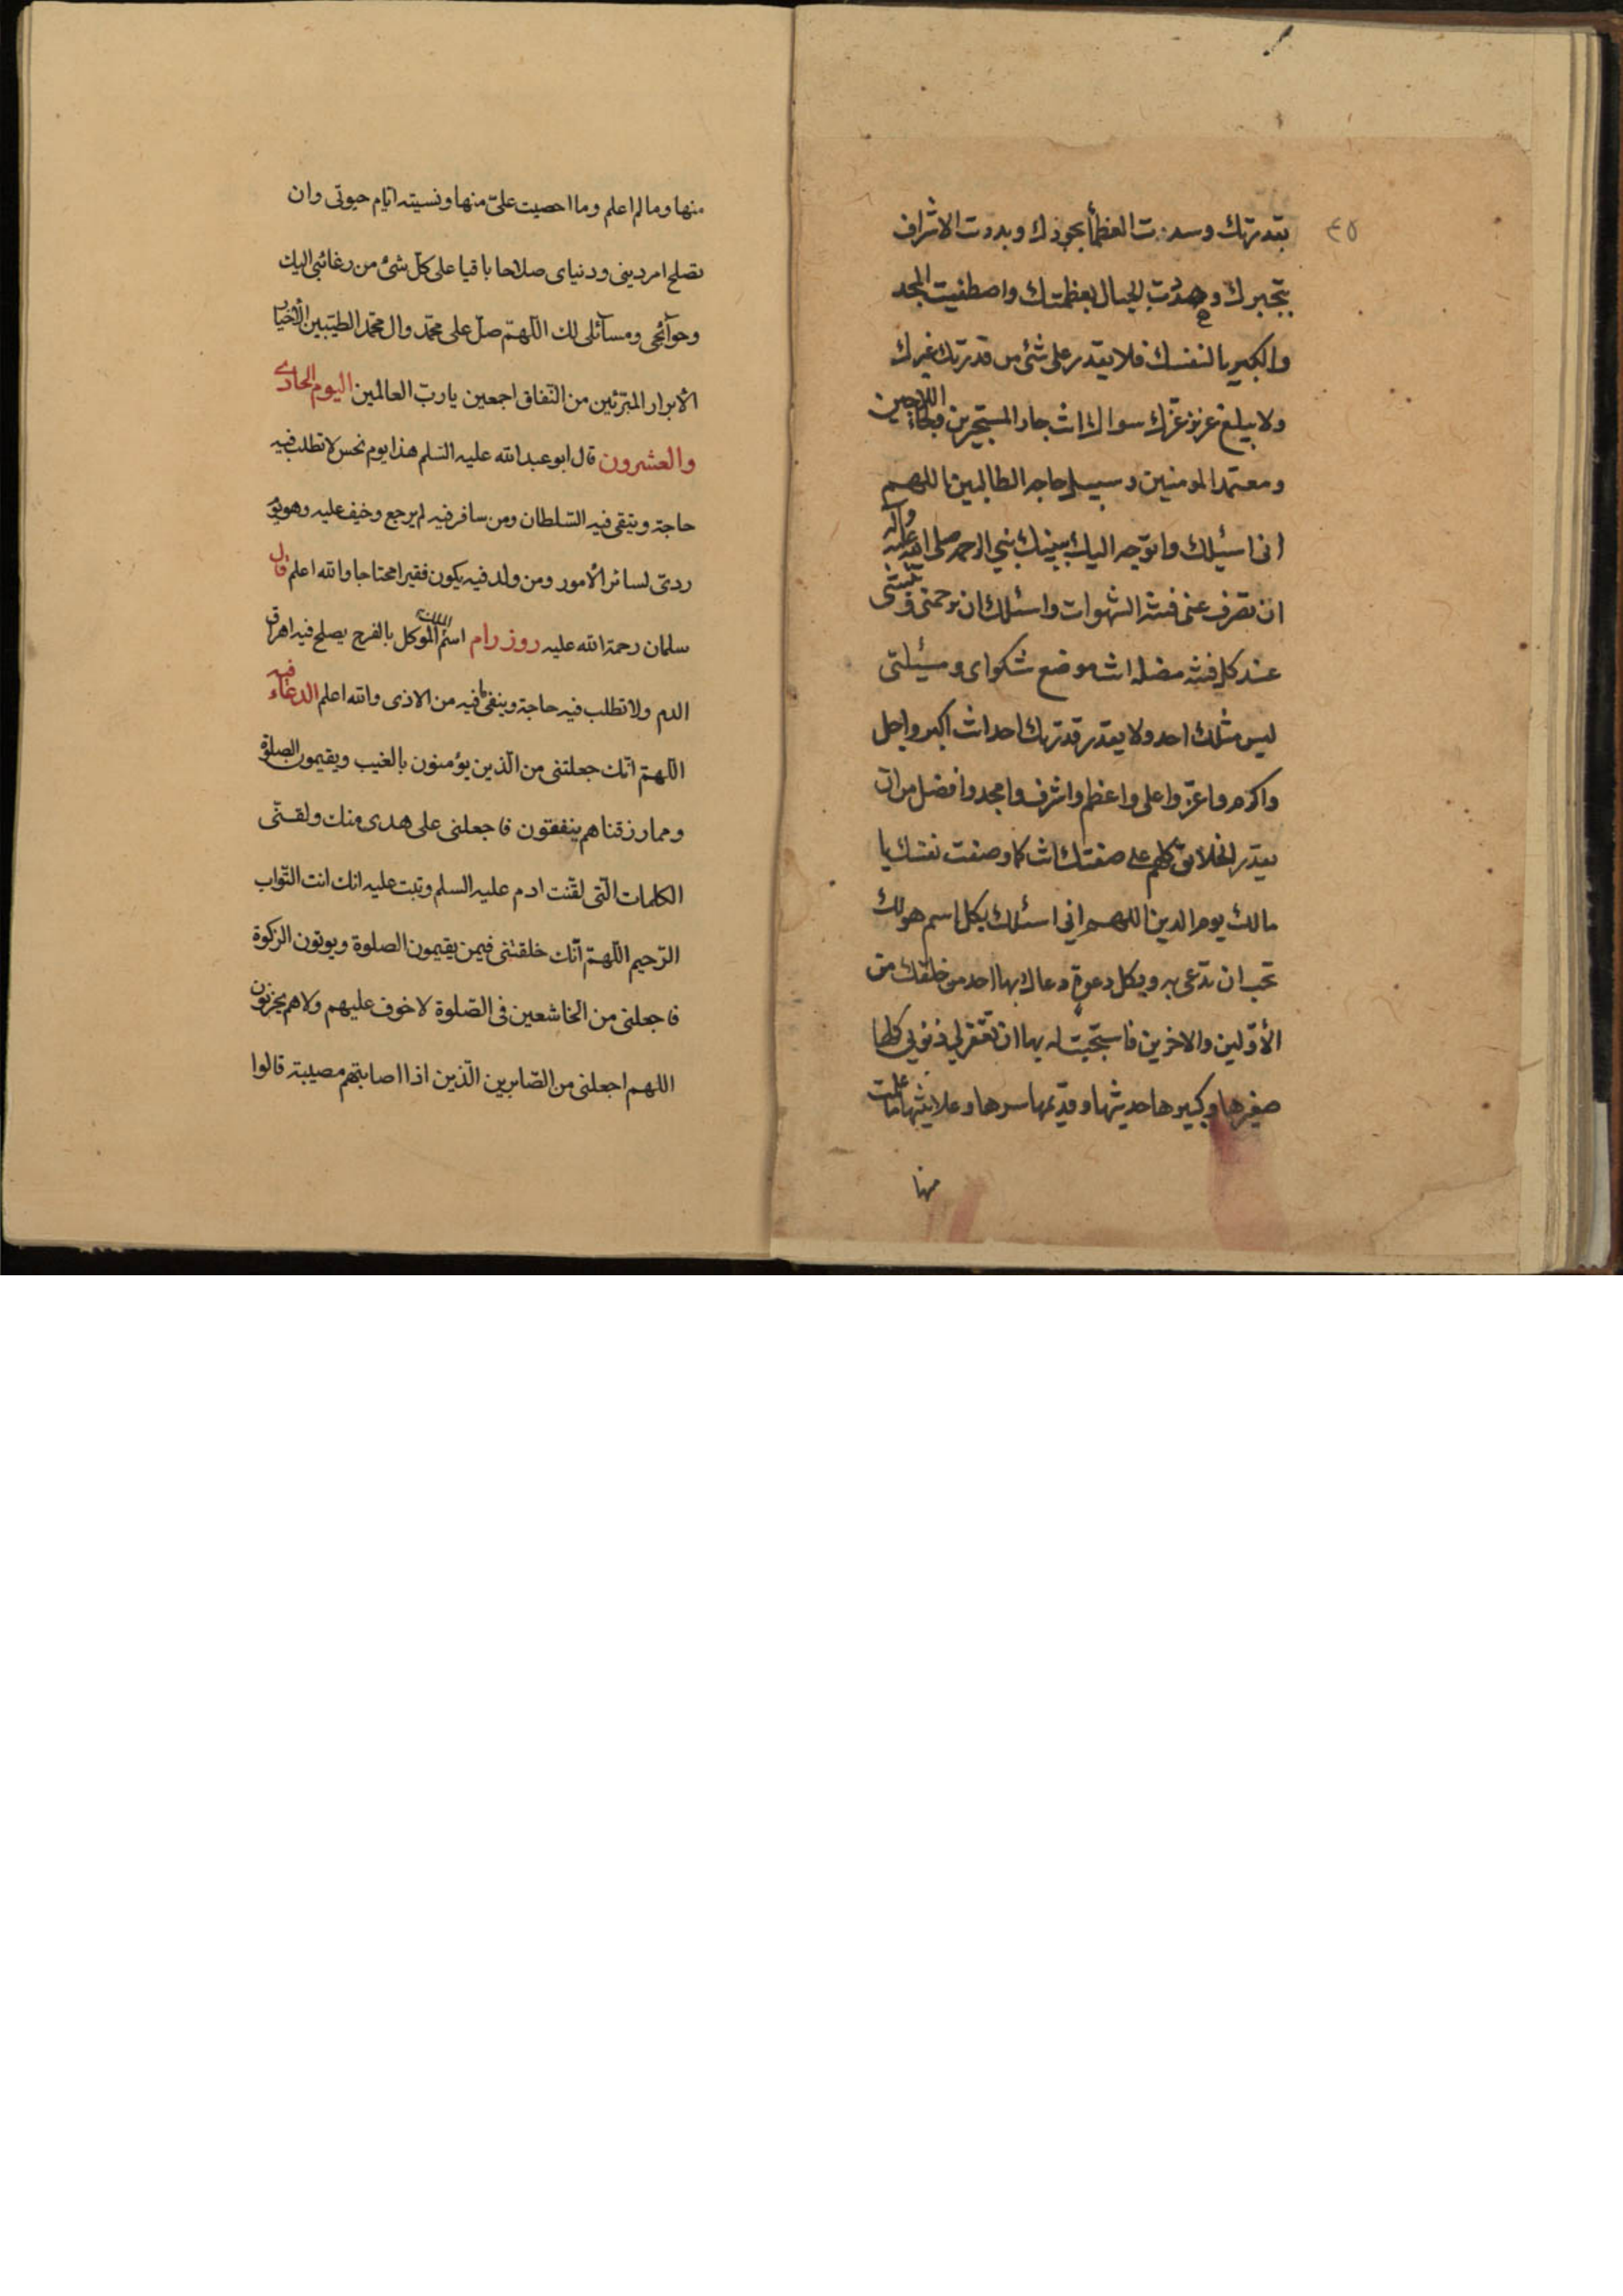 ٤٥
بقدرتك وسددت العظمأ بجودك وبددت الاشراف
بتجبرك وهددت الجبال بعظمتك واصطفيت المجد
والكبريا لنفسك فلا يقدر على شئ من قدرتك غيرك
ولا يبلغ عزيز عزك سواك انت جار المستجيرين ولجاء اللاجين
ومعتمد المومنين وسبيل حاجه الطالبين اللهم
انى اسئلك واتوجه اليك بنبيك نبي الرحمه صلى الله عليه واله
ان تصرف عنى فتنه الشهوات واسئلك ان ترحمنى وتثبتنى
عند كل فتنه مضله انت موضع شكواى ومسئلتى
ليس مثلك احد ولا يقدر قدرتك احد انت اكبر واجل
واكرم واعز واعلى واعظم واشرف وامجد وافضل من ان
يقدر الخلائق كلهم على صفتك انت كما وصفت نفسك يا
مالك يوم الدين اللهم اني اسئلك بكل اسم هو لك
تحب ان تدعى به وبكل دعوة دعاك بها احد من خلقك من
الأوّلين والاخرين فاستجبت له بها ان تغفر لي ذنوبي كلها
صغيرها وكبيرها حديثها وقديمها سرها وعلانيتها ما علمت
منها
منها وما لم اعلم وما احصيت علىّ منها ونسيته ايّام حيوتى وان
تصلح امر دينى ودنياى صلاحا باقيا على كلّ شئ من رغائبى اليك
وحوآئجى ومسآئلى لك اللّهمّ صلّ على محمّد وال محمّد الطيّبين الأخيار
الأبرار المبرّئين من النّفاق اجمعين يا ربّ العالمين اليوم الحادى
والعشرون قال ابو عبد الله عليه السّلم هذا يوم نحس لا تطلب فيه
حاجة ويتقى فيه السّلطان ومن سافر فيه لم يرجع وخيف عليه وهو يوم
ردىّ لسائر الأمور ومن ولد فيه يكون فقيرا محتاجا والله اعلم قال
سلمان رحمة الله عليه روز رام اسم الملك الموكل بالفرج يصلح فيه اهراق
الدم ولا تطلب فيه حاجة ويتقى فيه من الاذى والله اعلم الدعاء فيه
اللّهمّ انّك جعلتنى من الّذين يؤمنون بالغيب ويقيمون الصلوة
ومما رزقناهم ينفقون فاجعلنى على هدى منك ولقّنّى
الكلمات الّتى لقّنت ادم عليه السلم وتبت عليه انك انت التّواب
الرّحيم اللّهمّ انّك خلقتنى فيمن يقيمون الصلوة ويوتون الزكوة
فاجعلنى من الخاشعين فى الصّلوة لا خوف عليهم ولا هم يحزنون
اللهم اجعلنى من الصّابرين الّذين اذا اصابتهم مصيبة قالوا